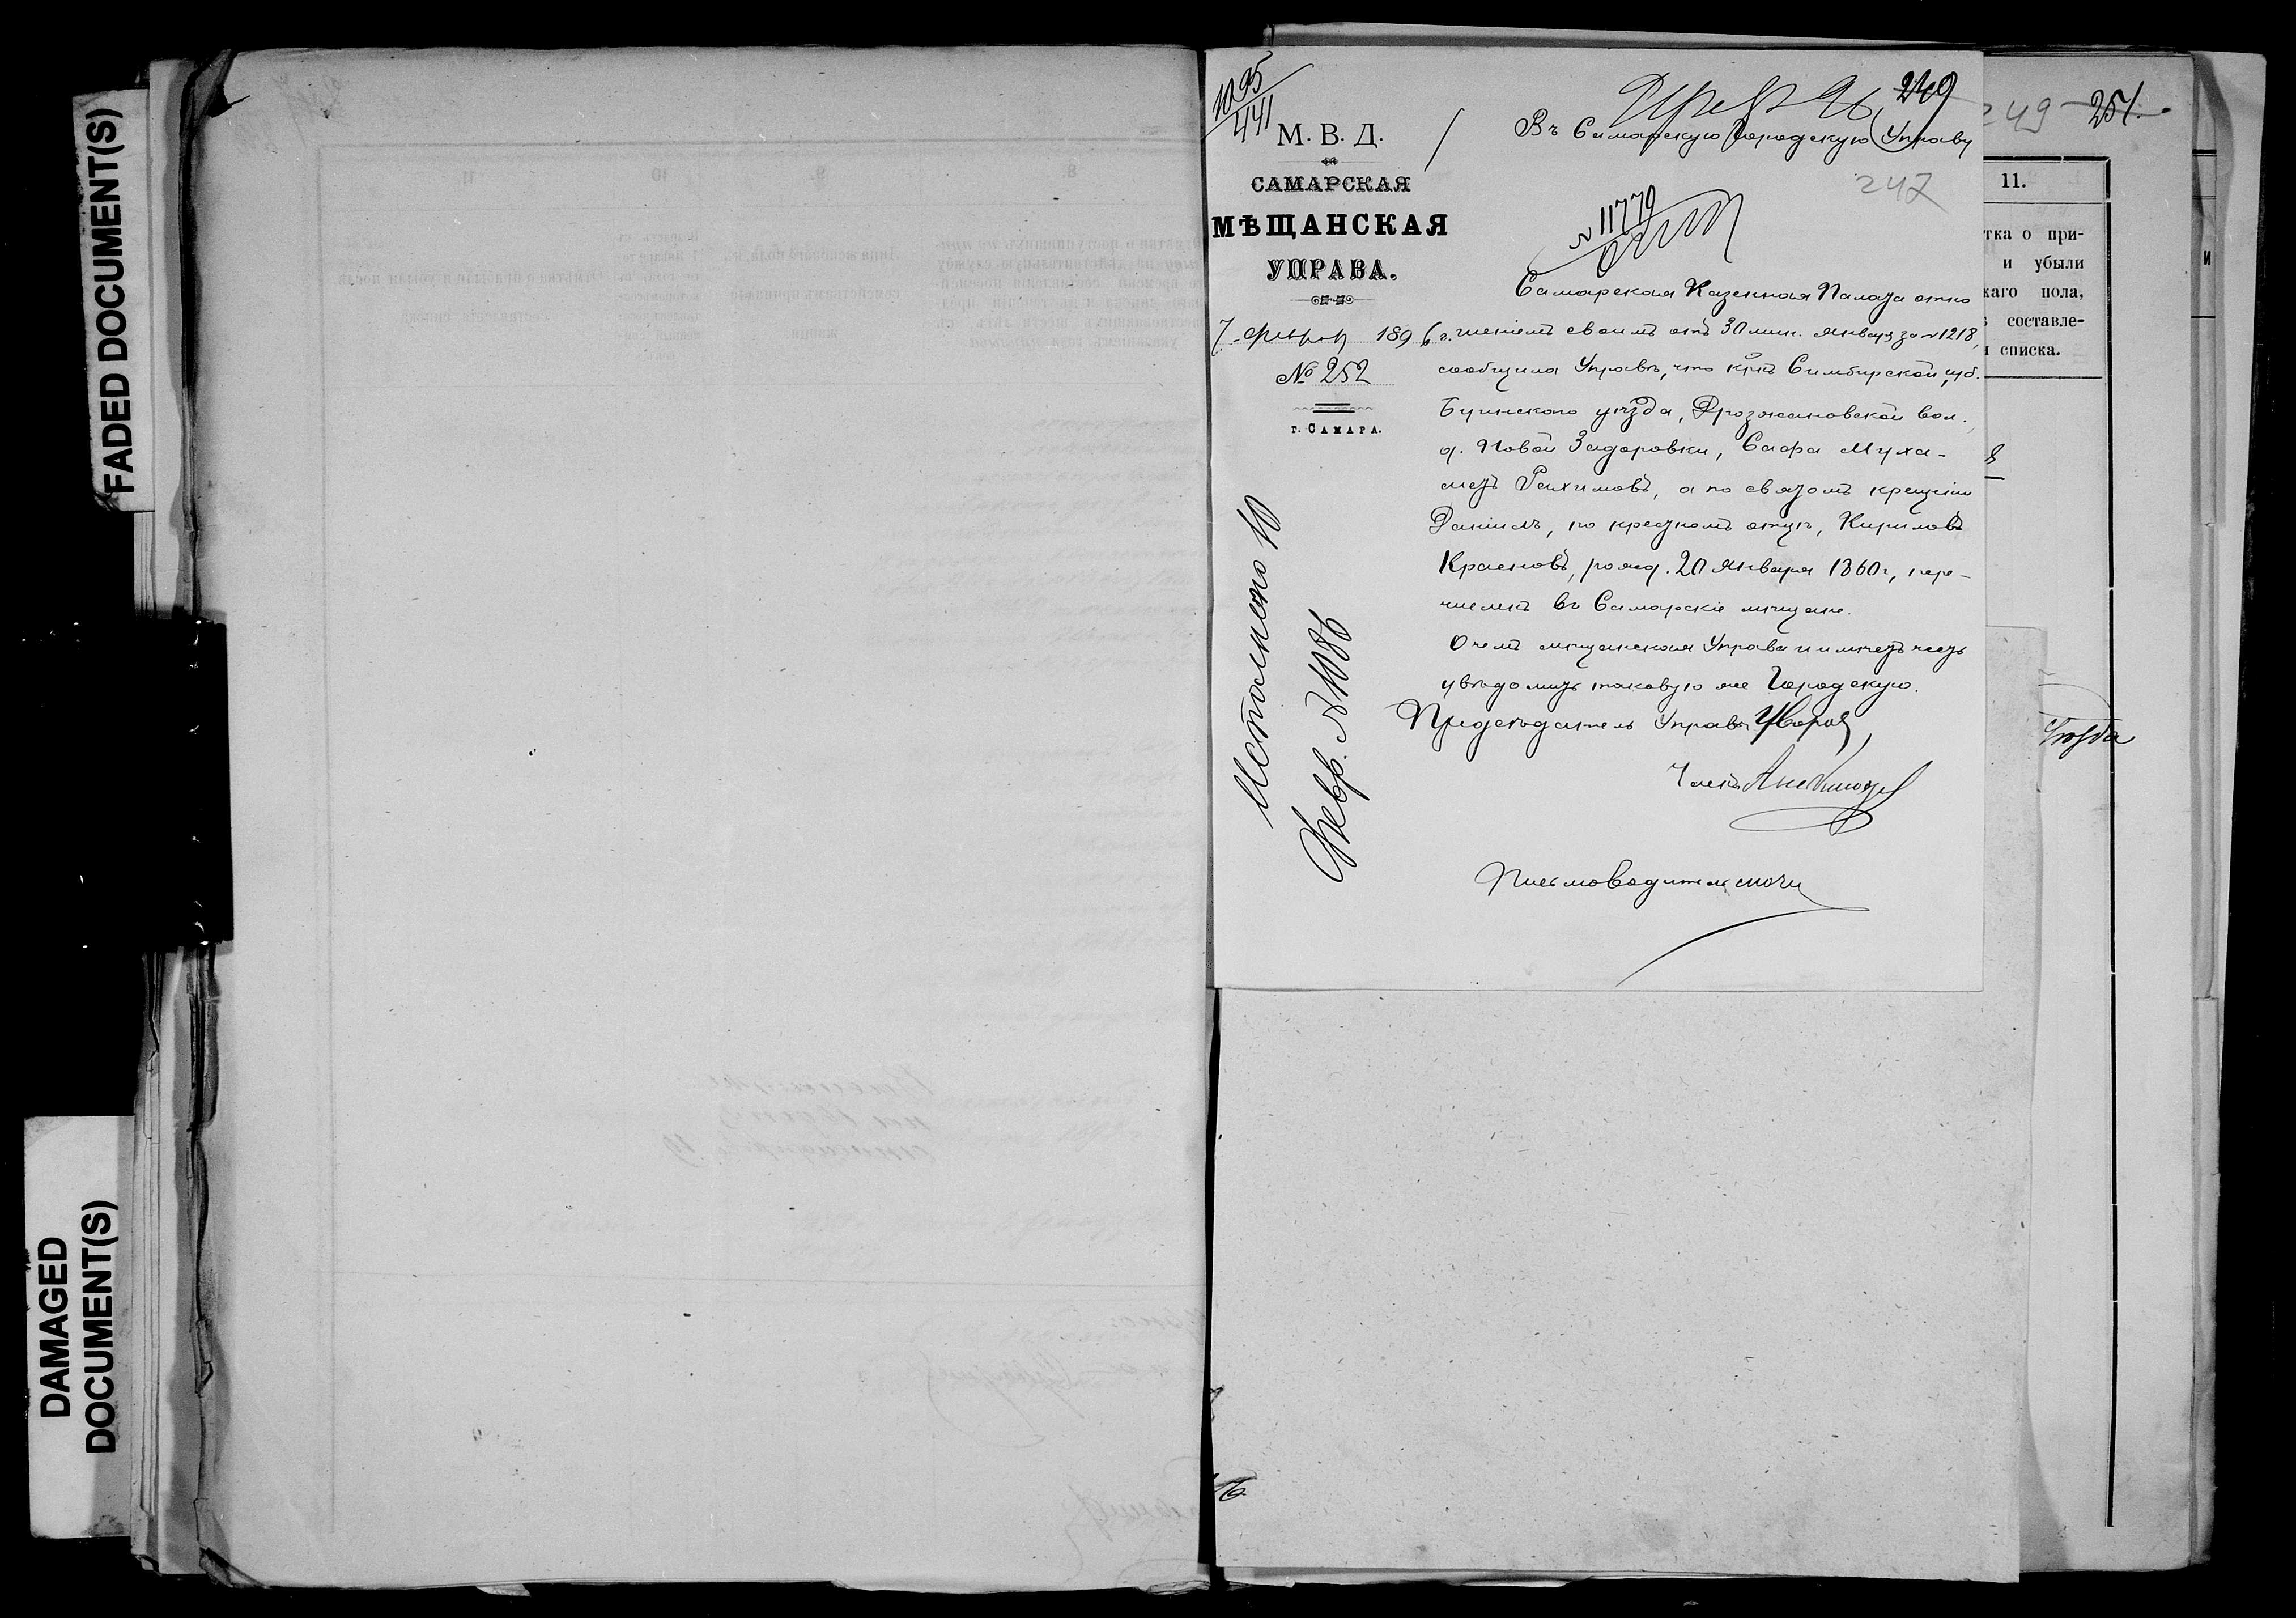 FADED DOCUMENT(S)
DAMAGED
DOCUMENT(S)
1095
441
249
249
251.
М. В. Д.
САМАРСКАЯ
МѢЩАНСКАЯ
УПРАВА.
7 189 6 г.
№ 252
г. САМАРА.
Въ Самарскую Городскую Управу
247
N 11779
Самарская Казенная Палата отно
шеніемъ своимъ отъ 30 мин. Января за N 1218,
сообщила Управѣ, что кр-нъ Симбирской губ.
Буинскаго уѣзда, Дрозжановской вол.
д. Новой Задоровки, Сафа Муха-
метъ Рахимовъ, а по святомъ крещеніи
Даніилъ, по крестномъ отцѣ, Кириловъ
Красновъ, рожд. 20 Января 1860 г., пере-
численъ въ Самарскіе мѣщане.
О чемъ мѣщанская Управа и имѣетъ честь
увѣдомить таковую же Городскую.
Предсѣдатель Управы
Членъ
Письмоводитель
Исполнено 10
Февр. N 1086
11.
тка о при-
и убыли
каго пола,
составле-
и списка.
и